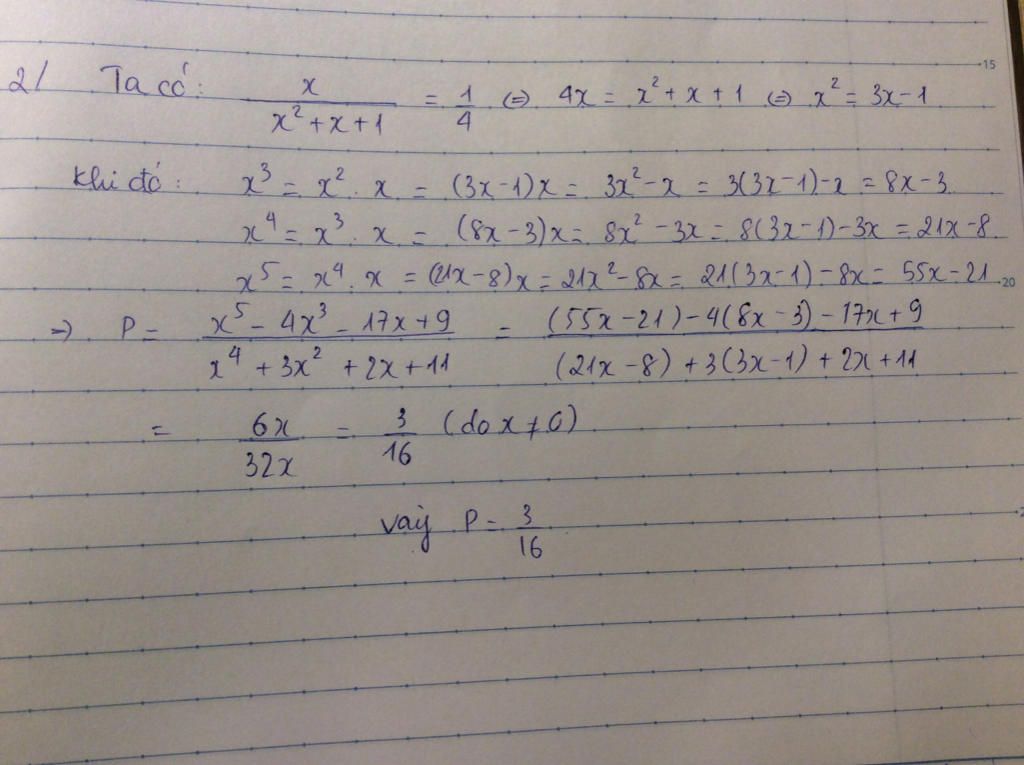 15
2/ Ta có: x/(x² + x + 1) = 1/4 ⇔ 4x = x² + x + 1 ⇔ x² = 3x - 1
Khi đó: x³ = x² . x = (3x-1)x = 3x² - x = 3(3x-1) - x = 8x - 3
x⁴ = x³ . x = (8x - 3)x = 8x² - 3x = 8(3x-1) - 3x = 21x - 8
x⁵ = x⁴ . x = (21x - 8)x = 21x² - 8x = 21(3x-1) - 8x = 55x - 21
20
⇒ P = (x⁵ - 4x³ - 17x + 9)/(x⁴ + 3x² + 2x + 11) = ((55x - 21) - 4(8x - 3) - 17x + 9)/((21x - 8) + 3(3x - 1) + 2x + 11)
= 6x/32x = 3/16 (do x ≠ 0)
vậy P = 3/16